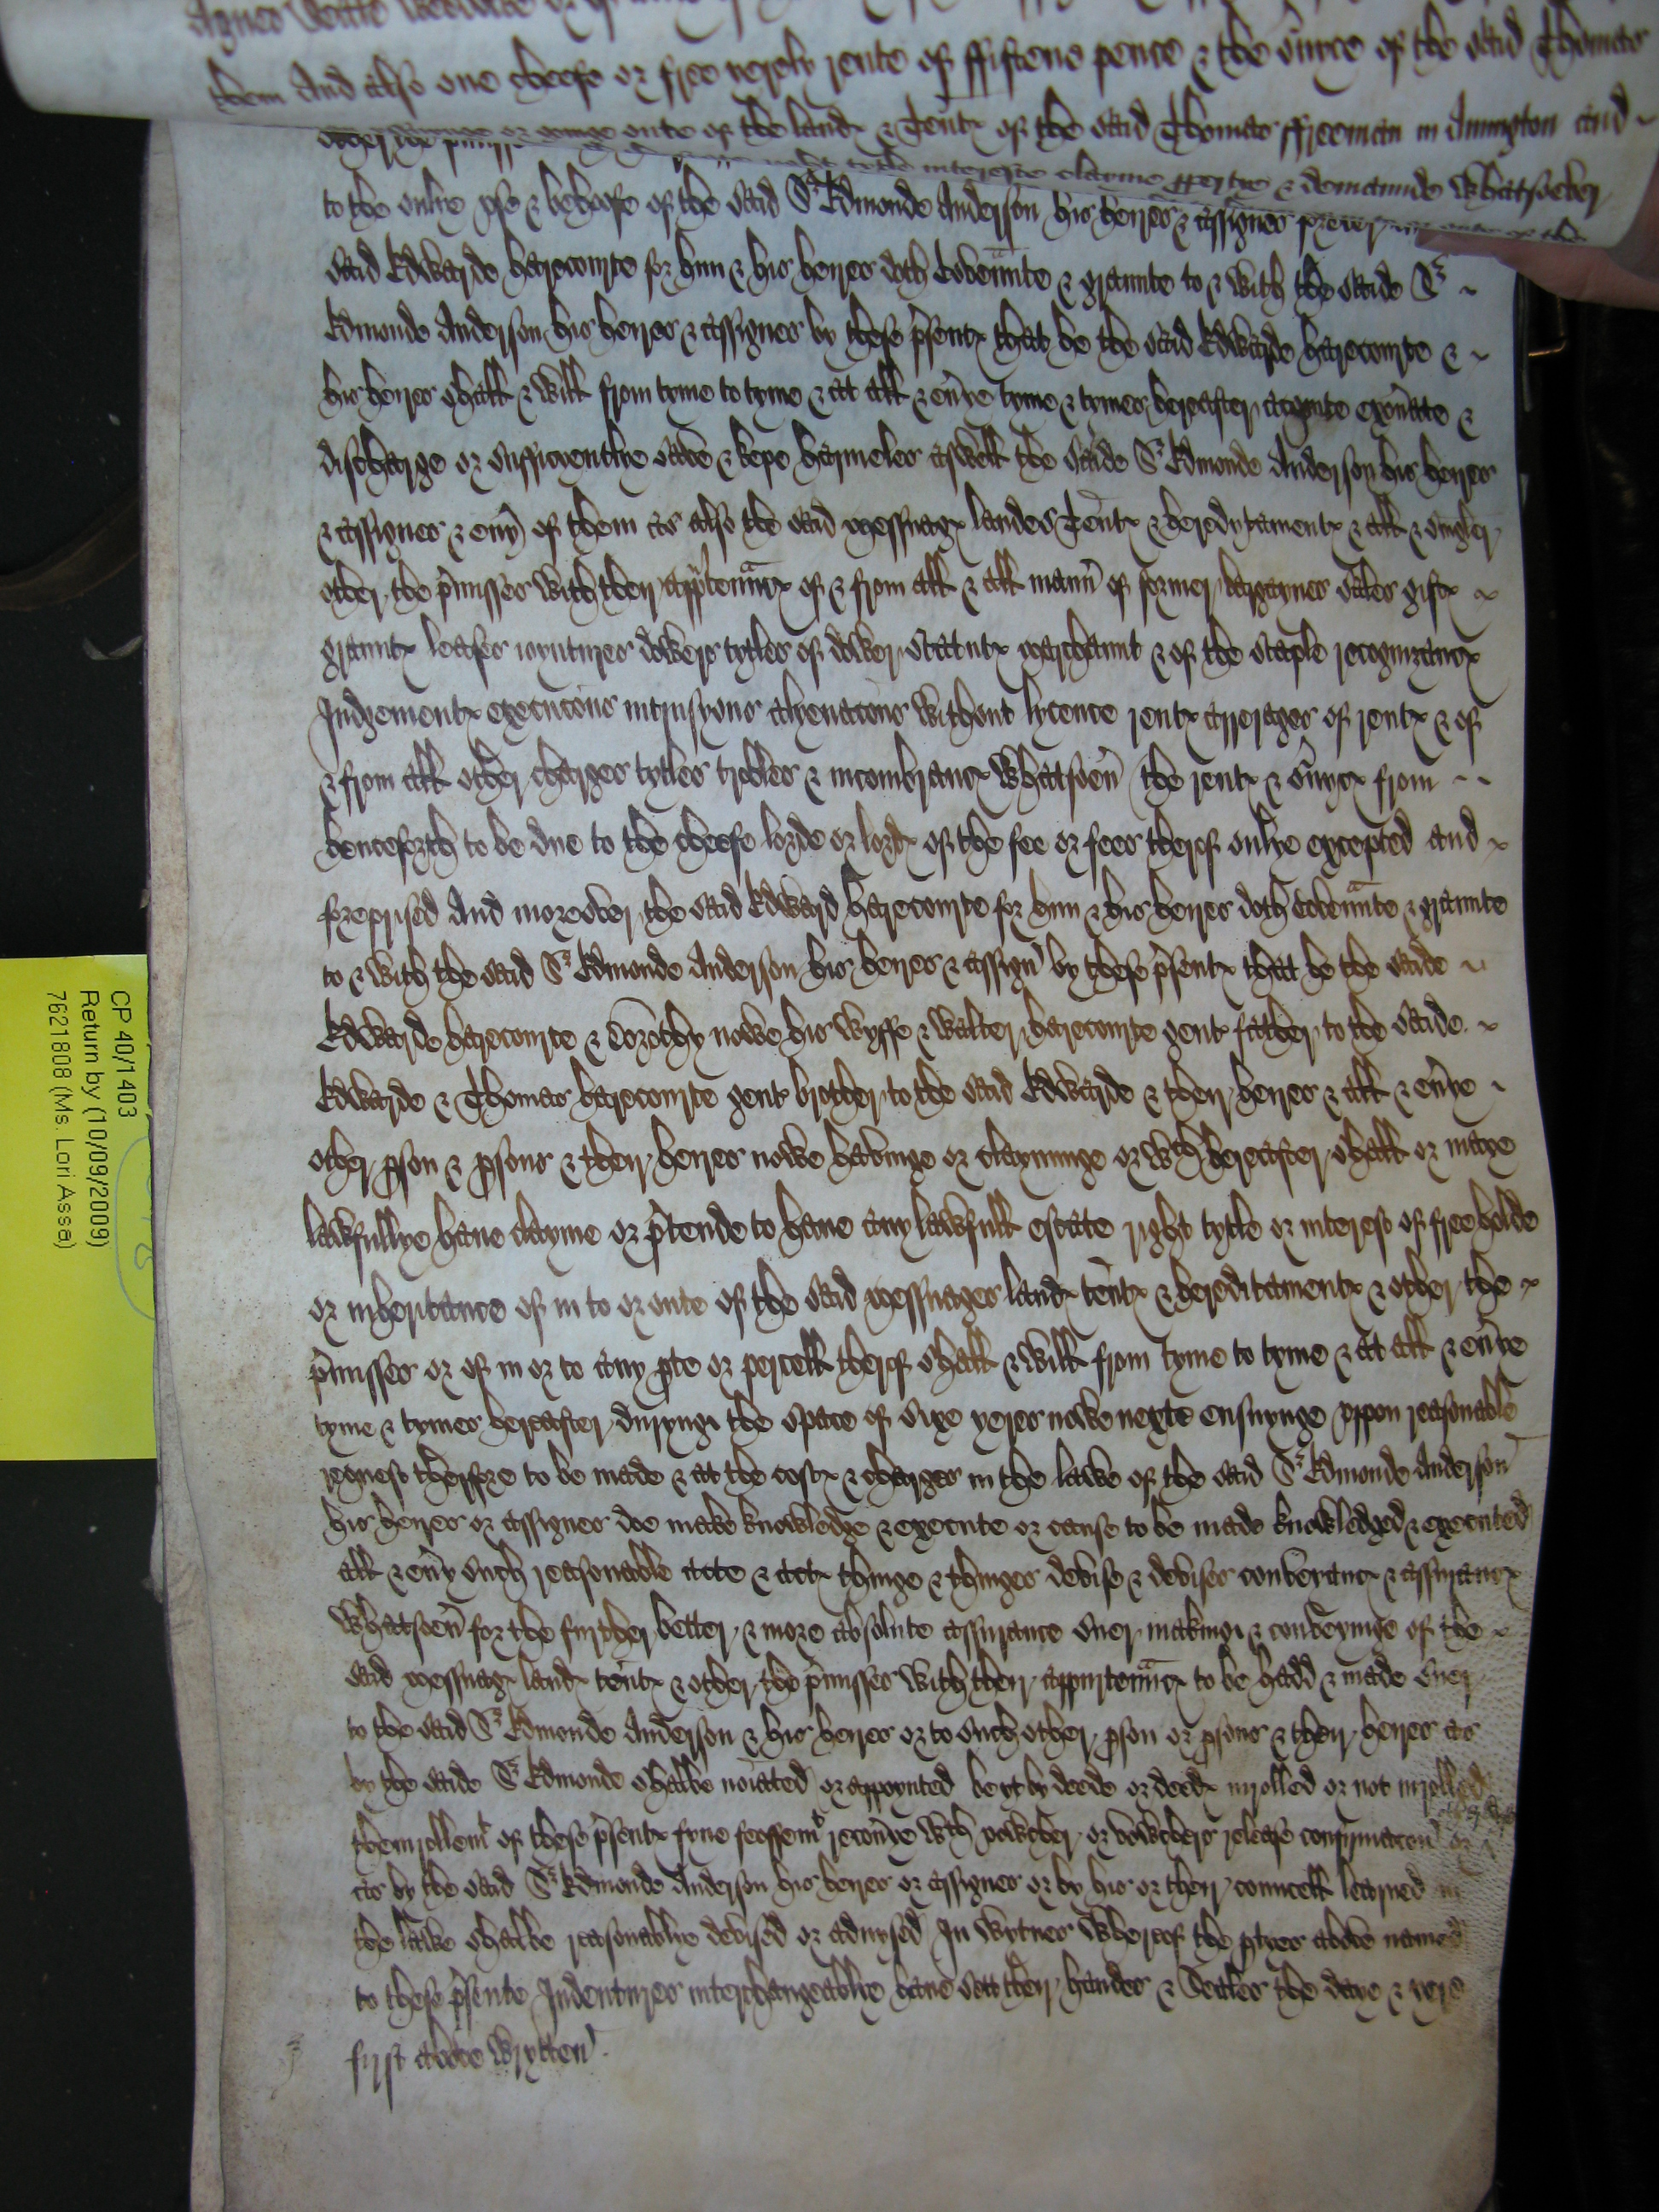 them And also one cheefe or free yerely rente of ffiftene pence & the s'vice of the said Thomas
goinge oute of the landx & Tentx of the said Thomas ffreeman in Amington and
tytle intereste clayme & demaunde Whatsoever
to the onlye vse & behoofe of the said Sr Edmonde Anderson his heires & assignes forever
said Edwarde harecourte for hym & his heires doth Covennte & graunte to & with the saide Sr
Edmonde Anderson his heires & assignes by these p'sentx that he the said Edwarde harecourte &
his heires shall & will from tyme to tyme & at all & eu'ye tyme & tymes hereafter acquite exon'ate &
discharge or sufficientlye save & kepe harmeles aswell the saide Sr Edmonde Anderson his heires
& assignes & eu'y of them as also the said messuagx landes Tentx & heredytamentx & all & singler
other the p'misses with their app'tennncx of & from all & all mann' of former bargaynes sales giftx
grauntx leases ioyntures dowers tytles of dower statutx marchaunt & of the staple recognizancx
Judgementx execucons intrusyons alyenacons without lycence rentx arrerages of rentx & of
& from all other charges tytles trobles & incombrancx Whatsoeu' the rentx & s'uycx from
henceforth to be due to the cheefe lorde or lordx of the fee or fees therof onlye excepted and
foreprised And moreover the said Edward harecourte for hym & his heires doth Covennte & graunte
to & with the said Sr Edmonde Anderson his heires & assign' by these p'sentx that he the saide
Edwarde harecourte & Dorothy nowe his Wyffe & Walter harecourte gent father to the saide
Edwarde & Thomas harecourte gent brother to the said Edwarde & their heires & all & eu'ye
other pson & psons & their heires nowe havinge or claymynge or wch hereafter shall or maye
lawfullye haue clayme or p'tende to haue any lawfull estate right tytle or interest of freeholde
or inheritance of in to or oute of the said messuages landx tentx & hereditamentx & other the
p'misses or of in or to any pte or percell therof shall & will from tyme to tyme & at all & eu'ye
tyme & tymes hereafter duryng the space of sixe yeres nowe nexte ensuynge vppon reasonable
request therfore to be made & at the costx & charges in the lawe of the said Sr Edmonde Anderson
his heires or assignes doe make knowledge & execute or cause to be made knowledged & executed
all & eu'y such reasonable acte & actx thinge & thinges devise & devises conveyancx & assurancx
Whatsoeu' for the further better & more absolute assurance suer making & conveyinge of the
said messuagx landx tentx & other the p'misses with their appurtennncx to be hadd & made suer
to the said Sr Edmonde Anderson & his heires or to such other pson or psons & their heires as
by the saide Sr Edmonde shalbe no'iated or appoynted be yt by deede or deedx inrolled or not inrolled
thenrollemt of these p'sentx fyne feoffemt recou'ye wth vowcher or vowchers release confirmacon or
as by the said Sr Edmonde Anderson his heires or assignes or by his or their councell learned in
the lawe shalbe reasonablye devised or aduysed In Wytnes Wherof the ptyes above named
to these p'sente Indentures interchangeablye haue sett their handes & Seales the daye & yere
first above Wrytten'.
CP 40/1403
Return by (10/09/2009)
7621808 (Ms. Lori Assa)